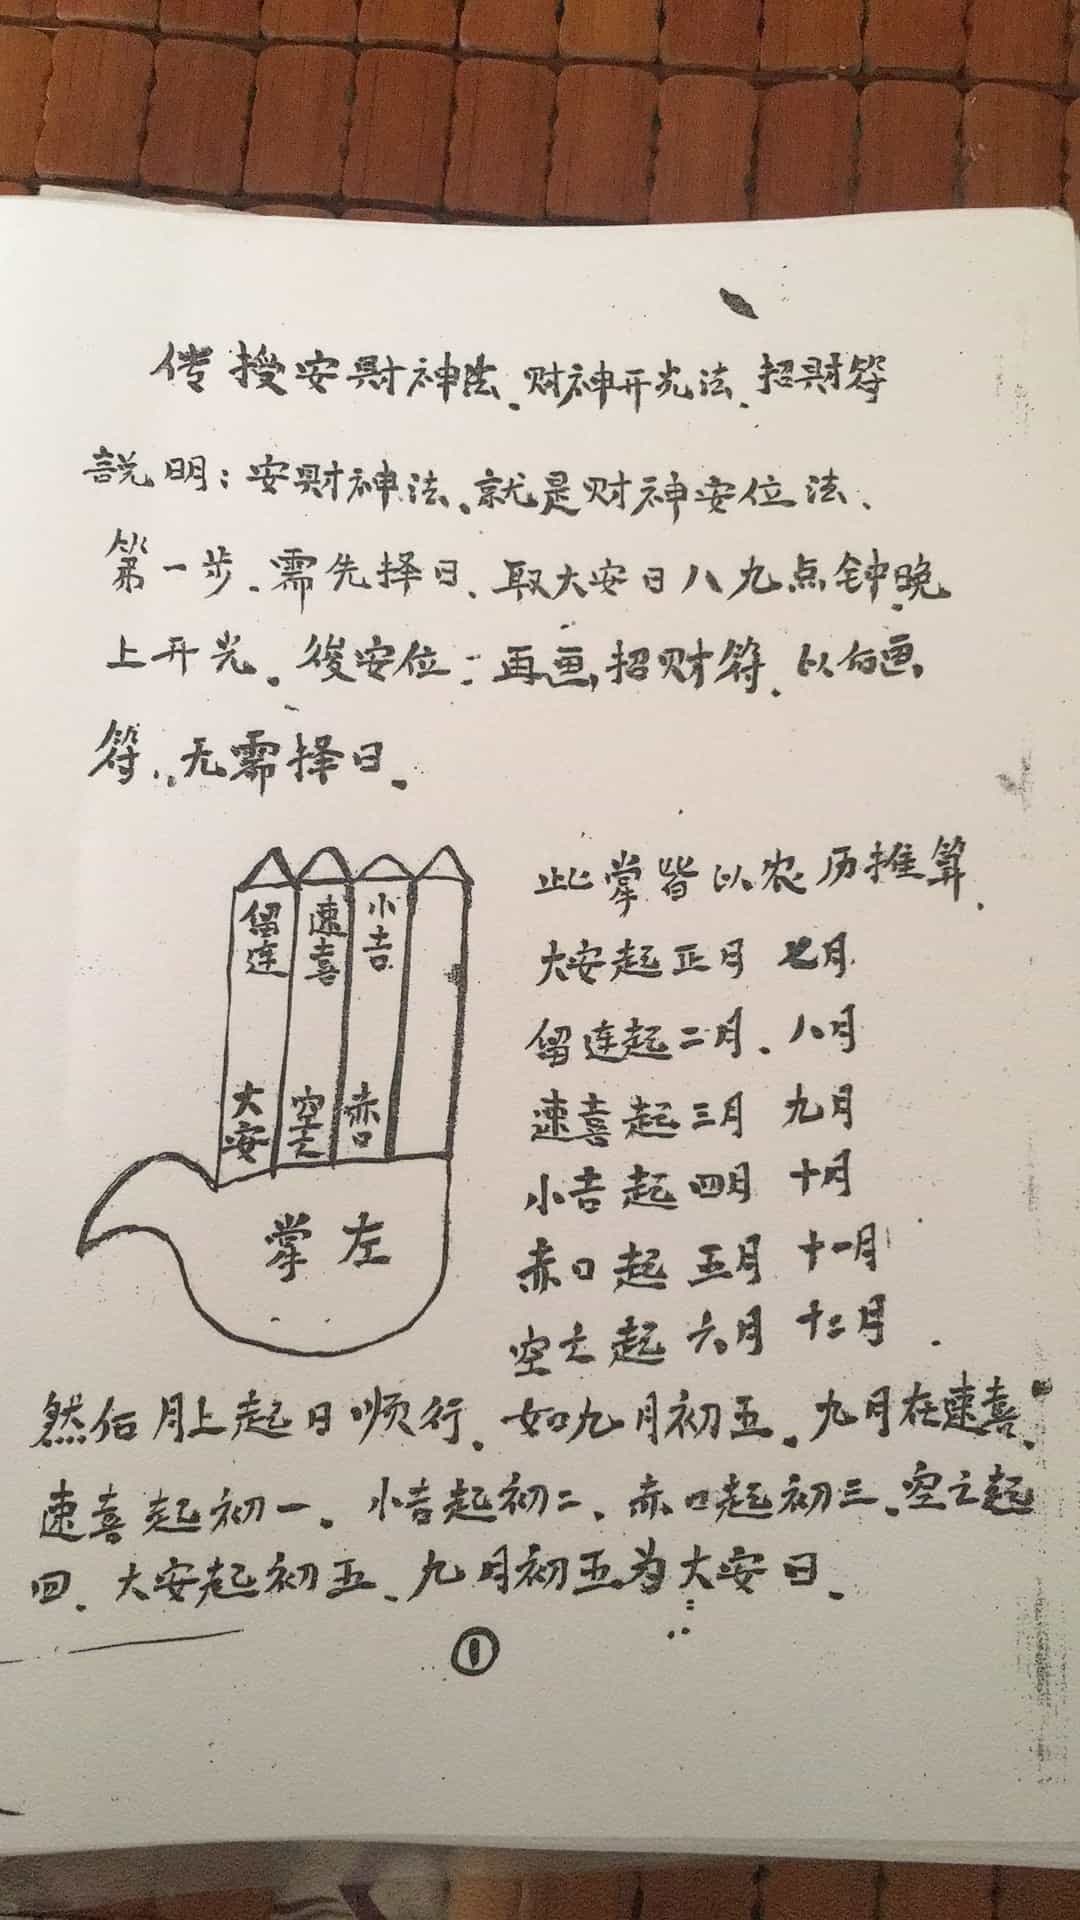 传授安財神法、财神开光法、招財符
説明:安財神法、就是财神安位法、
第一步、需先择日、取大安日八九点钟晚
上开光。後安位:再画招财符、以后画
符、无需择日。
留连 速喜 小吉
大安 空亡 赤口
掌左
此掌皆以农历推算、
大安起正月 七月
留连起二月、八月
速喜起三月 九月
小吉起四月 十月
赤口起五月 十一月
空亡起六月 十二月.
然后月上起日顺行、如九月初五、九月在速喜、
速喜起初一、小吉起初二、赤口起初三、空亡起
四、大安起初五、九月初五为大安日、
①